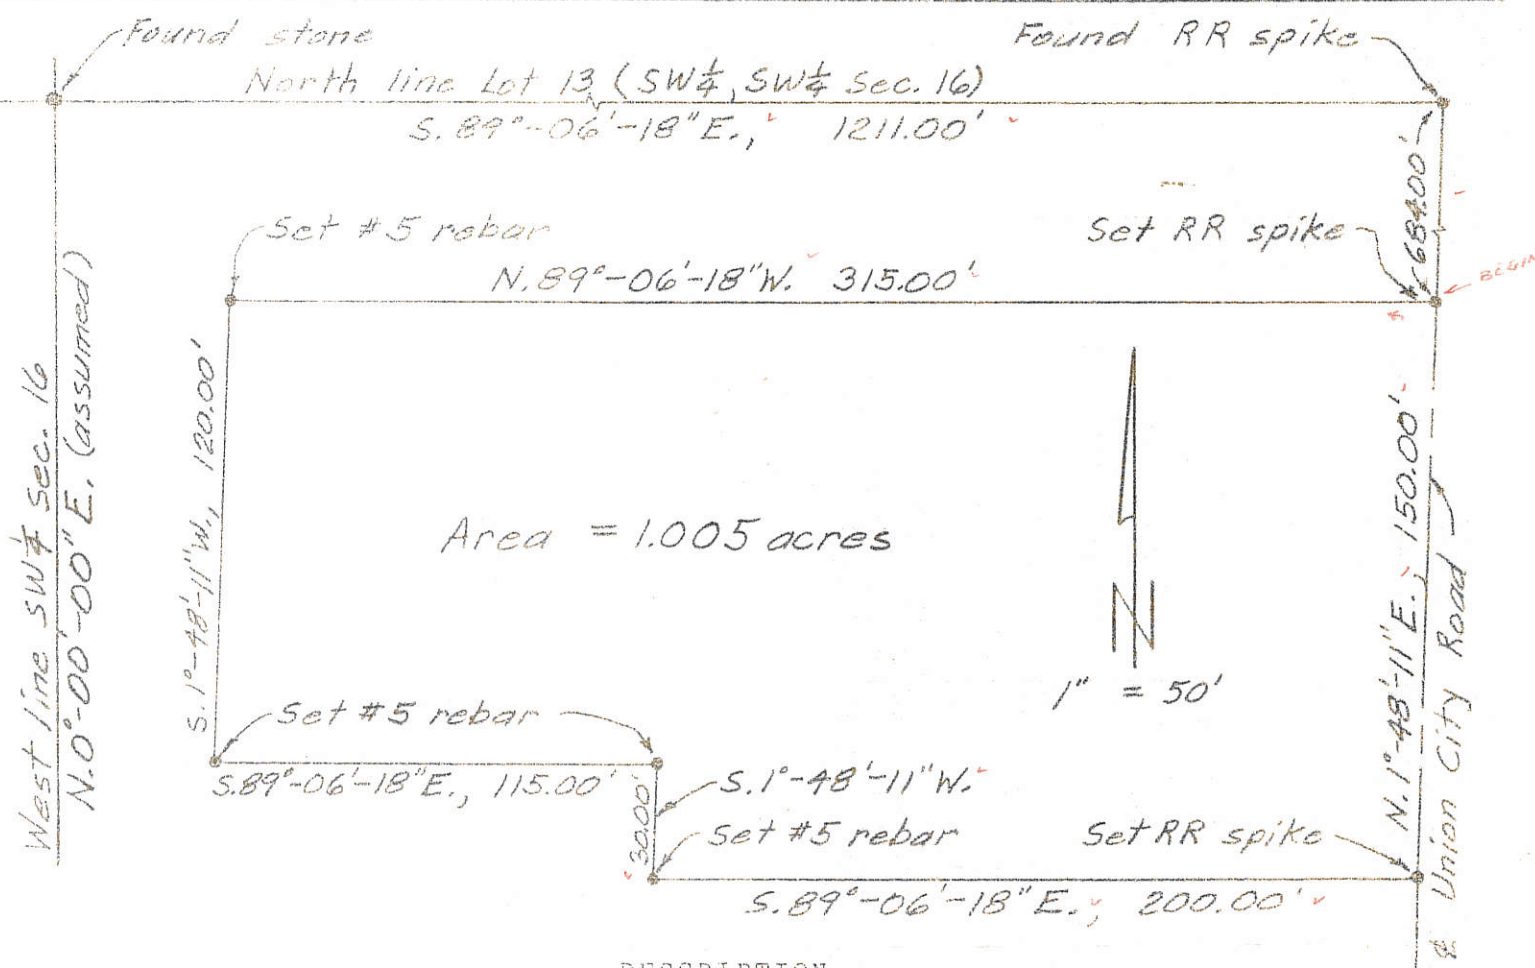 Found stone
Found RR spike
North line Lot 13 (SW¼, SW¼ Sec. 16)
S. 89°-06'-18"E., 1211.00'
684.00'
Set #5 rebar
Set RR spike
N. 89°-06'-18"W. 315.00'
BEGIN
West line SW¼ Sec. 16
N.0°-00'-00"E. (assumed)
S. 1°-48'-11"W., 120.00'
Area = 1.005 acres
N
1" = 50'
N. 1°-48'-11"E., 150.00'
℄ Union City Road
Set #5 rebar
S.89°-06'-18"E., 115.00'
S. 1°-48'-11"W.
30.00'
Set #5 rebar
Set RR spike
S. 89°-06'-18"E., 200.00'
DESCRIPTION